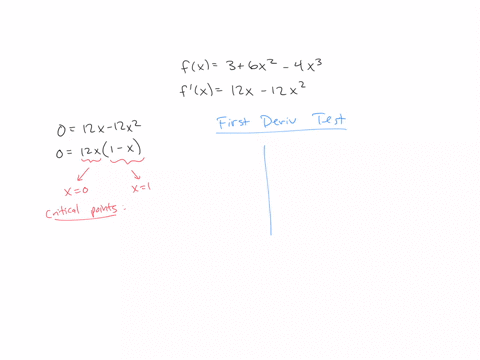 f(x) = 3 + 6x² - 4x³
f'(x) = 12x - 12x²
0 = 12x - 12x²
0 = 12x(1 - x)
x = 0
x = 1
Critical points :
First Deriv Test